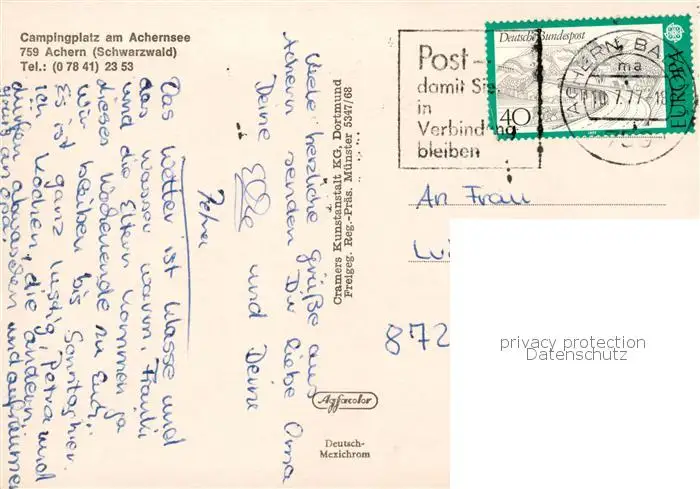 Campingplatz am Achernsee
759 Achern (Schwarzwald)
Tel.: (0 78 41) 23 53
Viele herzliche Grüße aus
Achern senden Dir liebe Oma
Deine Elke und Deine
Petra
Das Wetter ist klasse und
das Wasser warm. Frauki
und die Eltern kommen ja
dieses Wochenende zu Euch,
wir bleiben bis Sonntag hier.
Es ist ganz lustig, Petra und
ich kochen, die andern
dürfen abwaschen und aufräumen
Gruß an Opa!
Cramers Kunstanstalt KG, Dortmund
Freigeg. Reg.-Präs. Münster 5347/68
Agfacolor
Deutsch-
Mexichrom
Post -
damit Sie
in
Verbindung
bleiben
Deutsche Bundespost
40
EUROPA
ACHERN, BA
ma
10.7.77-18
759
An Frau
872
privacy protection
Datenschutz